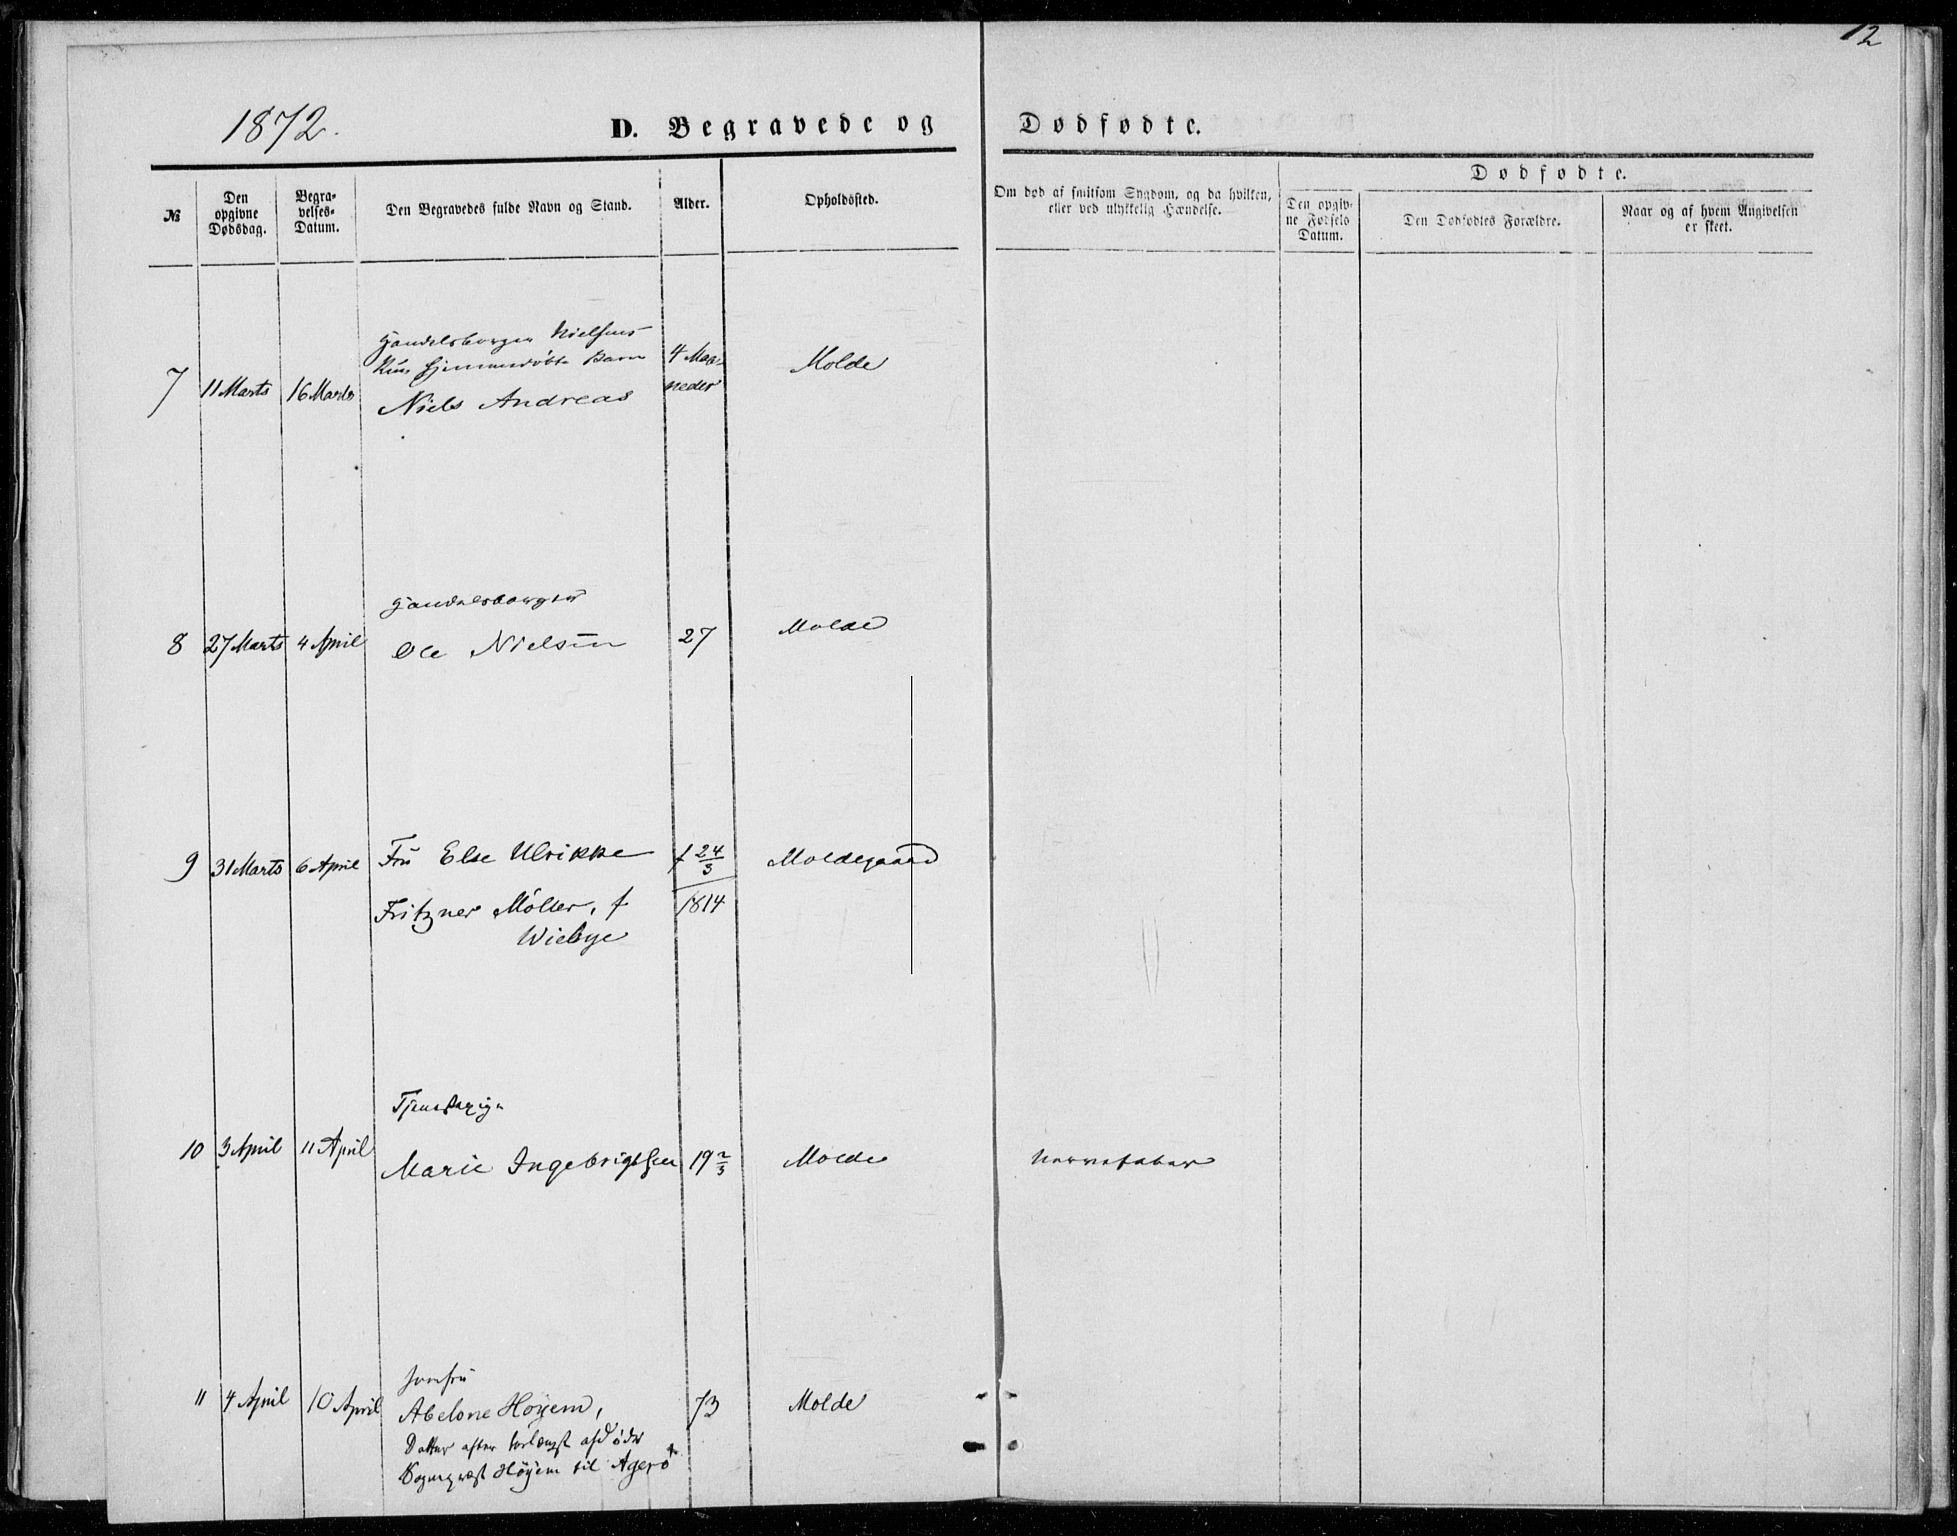 12
1872.
D. Begravede og Dødfødte.
№
Den opgivne Dødsdag.
Begravelses-Datum.
Den Begravedes fulde Navn og Stand.
Alder.
Opholdssted.
Om død af smitsom Sygdom, og da hvilken, eller ved ulykkelig Hændelse.
Dødfødte.
Den opgivne Fødsels Datum.
Den Dødfødtes Forældre.
Naar og af hvem Angivelsen er skeet.
Handelsborger Nielsens
hjemmedøbte Barn
7 11 Marts 16 Marts Niels Andreas 4 Maaneder Molde
Handelsborger
8 27 Marts 4 April Ole Nielsen 27 Molde
9 31 Marts 6 April Fru Else Ulrikke f 24/3 Moldegaard
Fritzner Møller, f 1814
Wiebye
Tjenestepige
10 3 April 11 April Marie Ingebrigtsen 19 2/3 Molde Nervefeber
Jomfru
11 4 April 10 April Abelone Höyem, 73 Molde
Datter efter forlængst afdøde
Sognepræst Höyem til Agerø